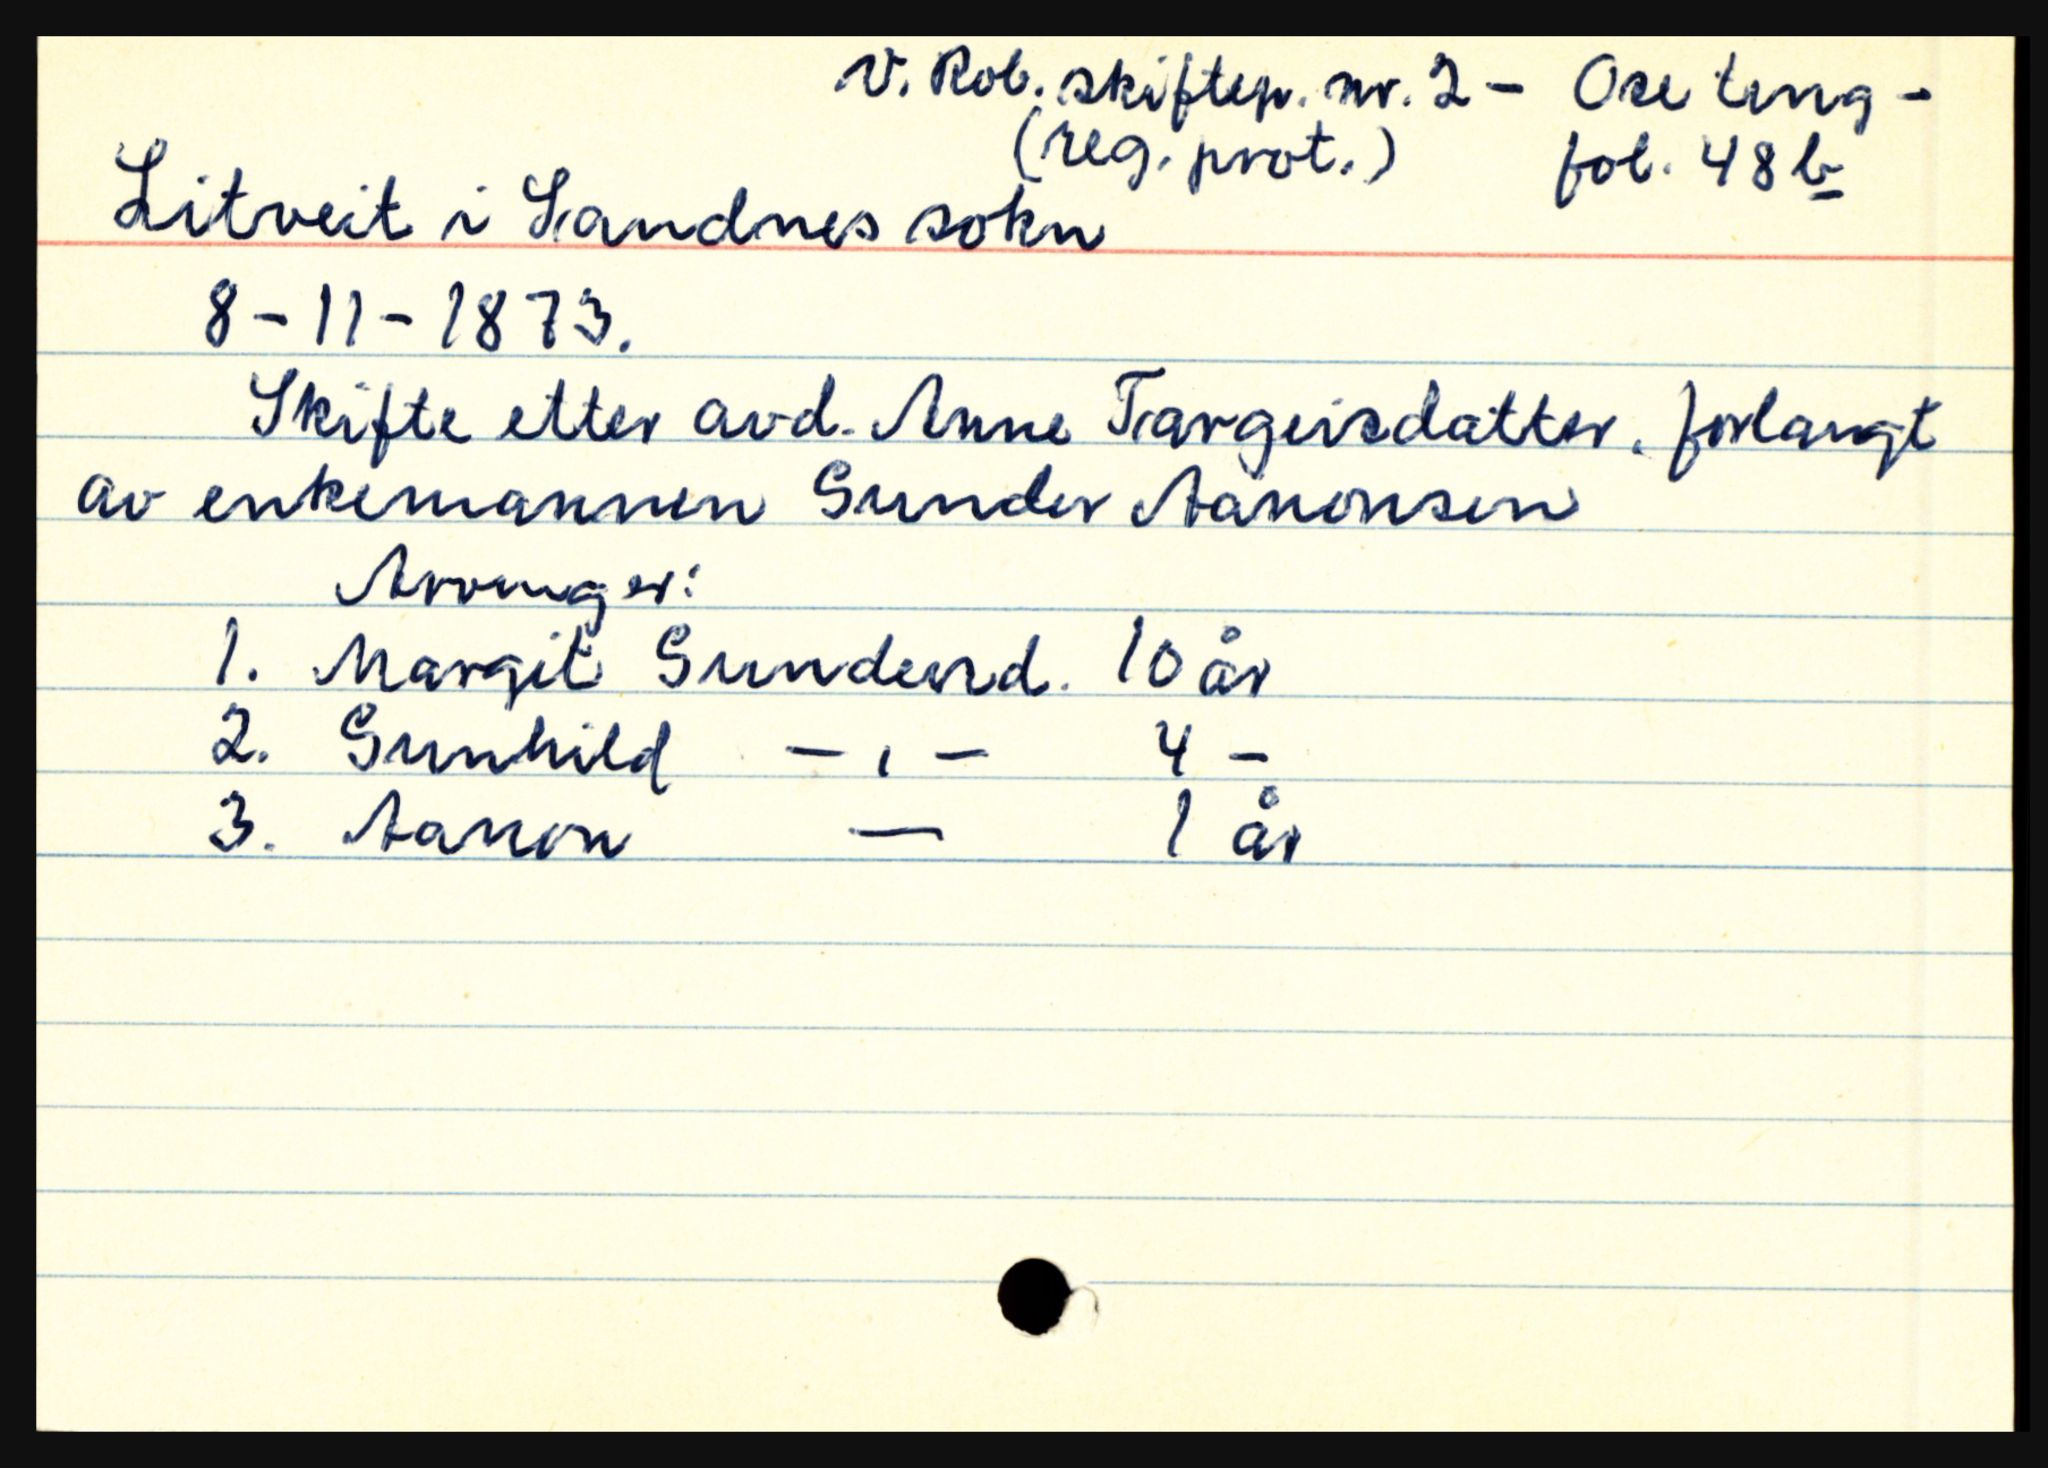 V. Rob. skiftep. nr. 2 - Ose ting -
(reg. prot.) fol. 48 b
Litveit i Sandnes sokn
8-11-1873.
Skifte etter avd. Anne Targeisdatter, forlangt
av enkemannen Gunder Aanonsen
Arvinger:
1. Margit Gundersd. 10 år
2. Gunhild -,- 4 -
3. Aanon — 1 år